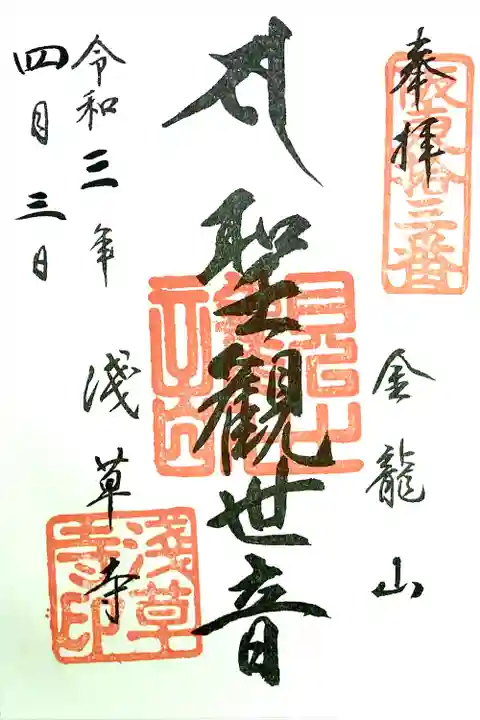 奉拝
坂東拾三番
金龍山
聖觀世音
淺草寺
淺草寺印
令和三年
四月三日